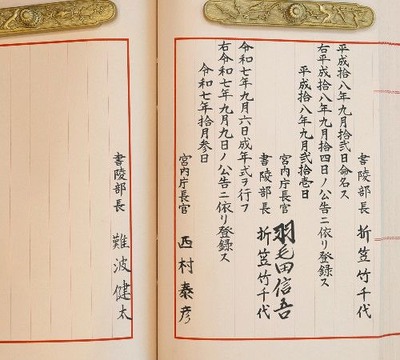 平成拾八年九月拾弐日命名ス
書陵部長 折笠竹千代
右平成拾八年九月拾四日ノ公告ニ依リ登録ス
平成拾八年九月弐拾壱日
宮内庁長官 羽毛田信吾
書陵部長 折笠竹千代
令和七年九月六日成年式ヲ行フ
右令和七年九月九日ノ公告ニ依リ登録ス
令和七年拾月参日
宮内庁長官 西村泰彦
書陵部長 難波健太